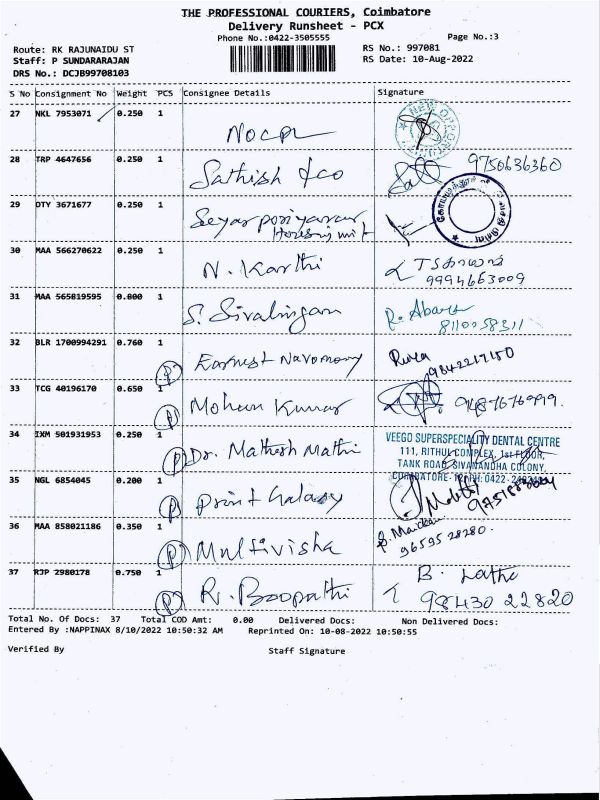 THE PROFESSIONAL COURIERS, Coimbatore
Delivery Runsheet - PCX
Phone No.:0422-3505555
Page No.:3
Route: RK RAJUNAIDU ST
RS No.: 997081
Staff: P SUNDARARAJAN
RS Date: 10-Aug-2022
DRS No.: DCJB99708103
S No Consignment No Weight PCS Consignee Details Signature
27 NKL 7953071 0.250 1
28 TRP 4647656 0.250 1 Sathish &co 9750636360
29 OTY 3671677 0.250 1
Housing unit
30 MAA 566270622 0.250 1 N. Karthi
9994663009
31 MAA 565819595 0.000 1 S. Sivalingam
32 BLR 1700994291 0.760 1 (P) Earnest Navomony
9842217150
33 TCG 40196170 0.650 1 (P) Mohan Kumar
34 IXM 501931953 0.250 1 (P) Dr. Mathesh Mathi
VEEGO SUPERSPECIALITY DENTAL CENTRE
111, RITHUL COMPLEX, 1st FLOOR,
TANK ROAD, SIVANANDHA COLONY,
COIMBATORE
35 NGL 6854045 0.200 1 (P) Print Galaxy
36 MAA 858021186 0.350 1 (P) Multivisha
9659528280
37 RJP 2980178 0.750 1 (P) R. Boopathi B. Latha
98430 22820
Total No. Of Docs: 37 Total COD Amt: 0.00 Delivered Docs: Non Delivered Docs:
Entered By :NAPPINAX 8/10/2022 10:50:32 AM Reprinted On: 10-08-2022 10:50:55
Verified By Staff Signature